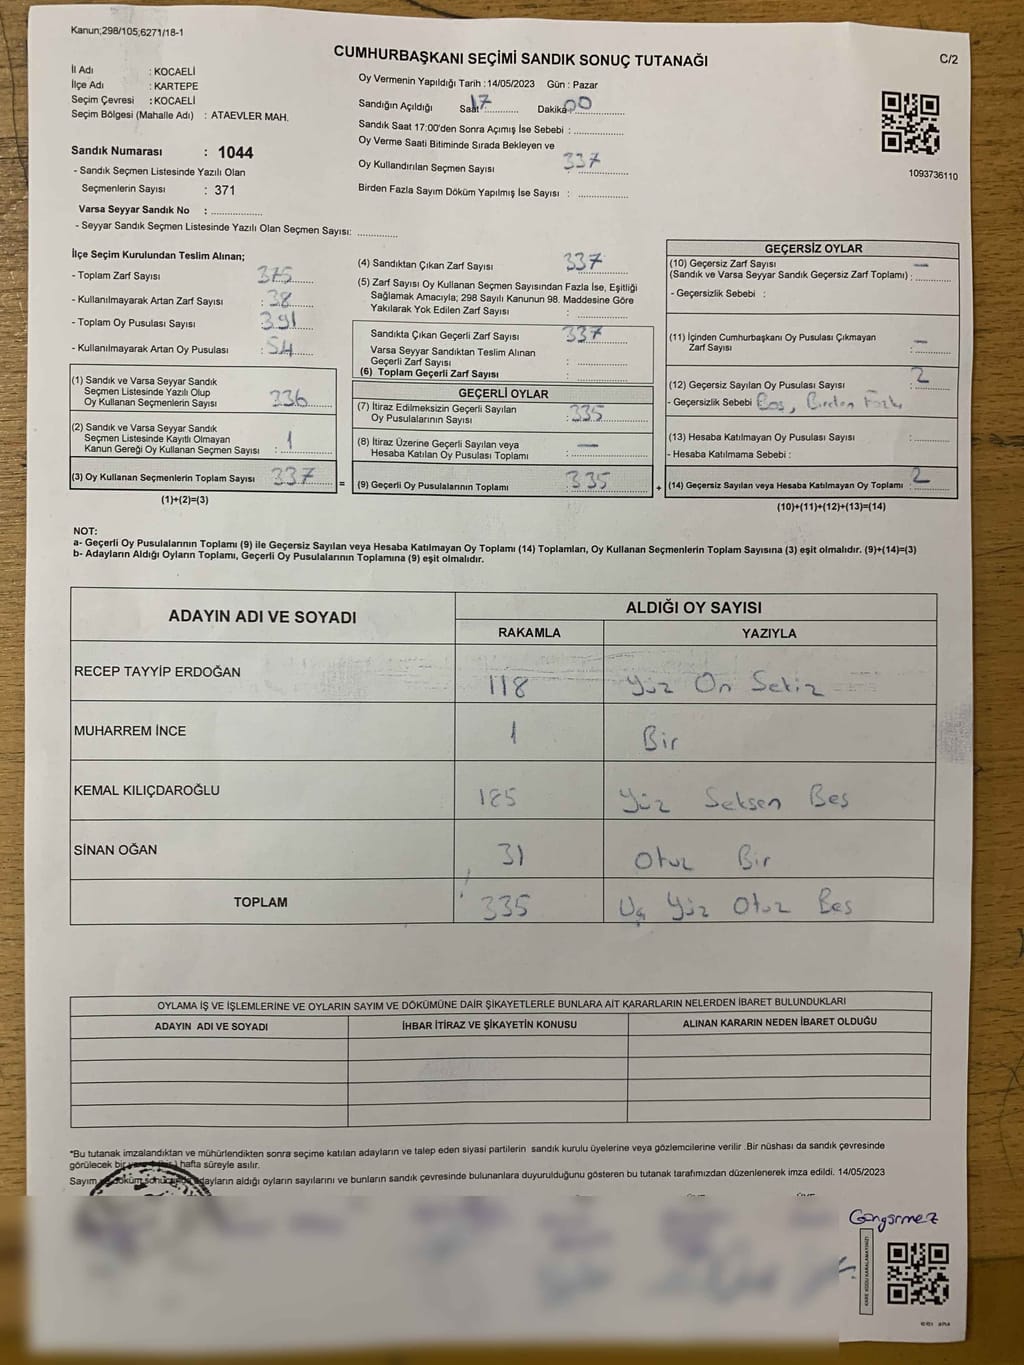 Kanun;298/105,6271/18-1
CUMHURBAŞKANI SEÇİMİ SANDIK SONUÇ TUTANAĞI
C/2
İl Adı : KOCAELİ
İlçe Adı : KARTEPE
Seçim Çevresi : KOCAELİ
Seçim Bölgesi (Mahalle Adı) : ATAEVLER MAH.
Sandık Numarası : 1044
- Sandık Seçmen Listesinde Yazılı Olan
Seçmenlerin Sayısı : 371
Varsa Seyyar Sandık No :
- Seyyar Sandık Seçmen Listesinde Yazılı Olan Seçmen Sayısı:
Oy Vermenin Yapıldığı Tarih : 14/05/2023 Gün : Pazar
Sandığın Açıldığı Saat 17 Dakika 00
Sandık Saat 17:00'den Sonra Açımış İse Sebebi :
Oy Verme Saati Bitiminde Sırada Bekleyen ve
Oy Kullandırılan Seçmen Sayısı 337
Birden Fazla Sayım Döküm Yapılmış İse Sayısı :
1093736110
İlçe Seçim Kurulundan Teslim Alınan;
- Toplam Zarf Sayısı 375
- Kullanılmayarak Artan Zarf Sayısı : 38
- Toplam Oy Pusulası Sayısı 391
- Kullanılmayarak Artan Oy Pusulası : 54
(1) Sandık ve Varsa Seyyar Sandık
Seçmen Listesinde Yazılı Olup
Oy Kullanan Seçmenlerin Sayısı 336
(2) Sandık ve Varsa Seyyar Sandık
Seçmen Listesinde Kayıtlı Olmayan
Kanun Gereği Oy Kullanan Seçmen Sayısı : 1
(3) Oy Kullanan Seçmenlerin Toplam Sayısı 337
(1)+(2)=(3)
=
(4) Sandıktan Çıkan Zarf Sayısı 337
(5) Zarf Sayısı Oy Kullanan Seçmen Sayısından Fazla İse, Eşitliği
Sağlamak Amacıyla; 298 Sayılı Kanunun 98. Maddesine Göre
Yakılarak Yok Edilen Zarf Sayısı :
Sandıkta Çıkan Geçerli Zarf Sayısı 337
Varsa Seyyar Sandıktan Teslim Alınan
Geçerli Zarf Sayısı :
(6) Toplam Geçerli Zarf Sayısı :
GEÇERLİ OYLAR
(7) İtiraz Edilmeksizin Geçerli Sayılan
Oy Pusulalarının Sayısı : 335
(8) İtiraz Üzerine Geçerli Sayılan veya
Hesaba Katılan Oy Pusulası Toplamı : —
(9) Geçerli Oy Pusulalarının Toplamı 335
+
GEÇERSİZ OYLAR
(10) Geçersiz Zarf Sayısı —
(Sandık ve Varsa Seyyar Sandık Geçersiz Zarf Toplamı) :
- Geçersizlik Sebebi :
(11) İçinden Cumhurbaşkanı Oy Pusulası Çıkmayan
Zarf Sayısı : —
(12) Geçersiz Sayılan Oy Pusulası Sayısı : 2
- Geçersizlik Sebebi Boş, Birden Fazla
(13) Hesaba Katılmayan Oy Pusulası Sayısı :
- Hesaba Katılmama Sebebi :
(14) Geçersiz Sayılan veya Hesaba Katılmayan Oy Toplamı : 2
(10)+(11)+(12)+(13)=(14)
NOT:
a- Geçerli Oy Pusulalarının Toplamı (9) ile Geçersiz Sayılan veya Hesaba Katılmayan Oy Toplamı (14) Toplamları, Oy Kullanan Seçmenlerin Toplam Sayısına (3) eşit olmalıdır. (9)+(14)=(3)
b- Adayların Aldığı Oyların Toplamı, Geçerli Oy Pusulalarının Toplamına (9) eşit olmalıdır.
ADAYIN ADI VE SOYADI ALDIĞI OY SAYISI
RAKAMLA YAZIYLA
RECEP TAYYİP ERDOĞAN 118 Yüz On Sekiz
MUHARREM İNCE 1 Bir
KEMAL KILIÇDAROĞLU 185 Yüz Seksen Beş
SİNAN OĞAN 31 Otuz Bir
TOPLAM 335 Üç Yüz Otuz Beş
OYLAMA İŞ VE İŞLEMLERİNE VE OYLARIN SAYIM VE DÖKÜMÜNE DAİR ŞİKAYETLERLE BUNLARA AİT KARARLARIN NELERDEN İBARET BULUNDUKLARI
ADAYIN ADI VE SOYADI İHBAR İTİRAZ VE ŞİKAYETİN KONUSU ALINAN KARARIN NEDEN İBARET OLDUĞU
*Bu tutanak imzalandıktan ve mühürlendikten sonra seçime katılan adayların ve talep eden siyasi partilerin sandık kurulu üyelerine veya gözlemcilerine verilir .Bir nüshası da sandık çevresinde
görülecek bir hafta süreyle asılır.
Sayım döküm adayların aldığı oyların sayılarını ve bunların sandık çevresinde bulunanlara duyurulduğunu gösteren bu tutanak tarafımızdan düzenlenerek imza edildi. 14/05/2023
Güngörmez
KARE KODU KARALAMAYINIZ!